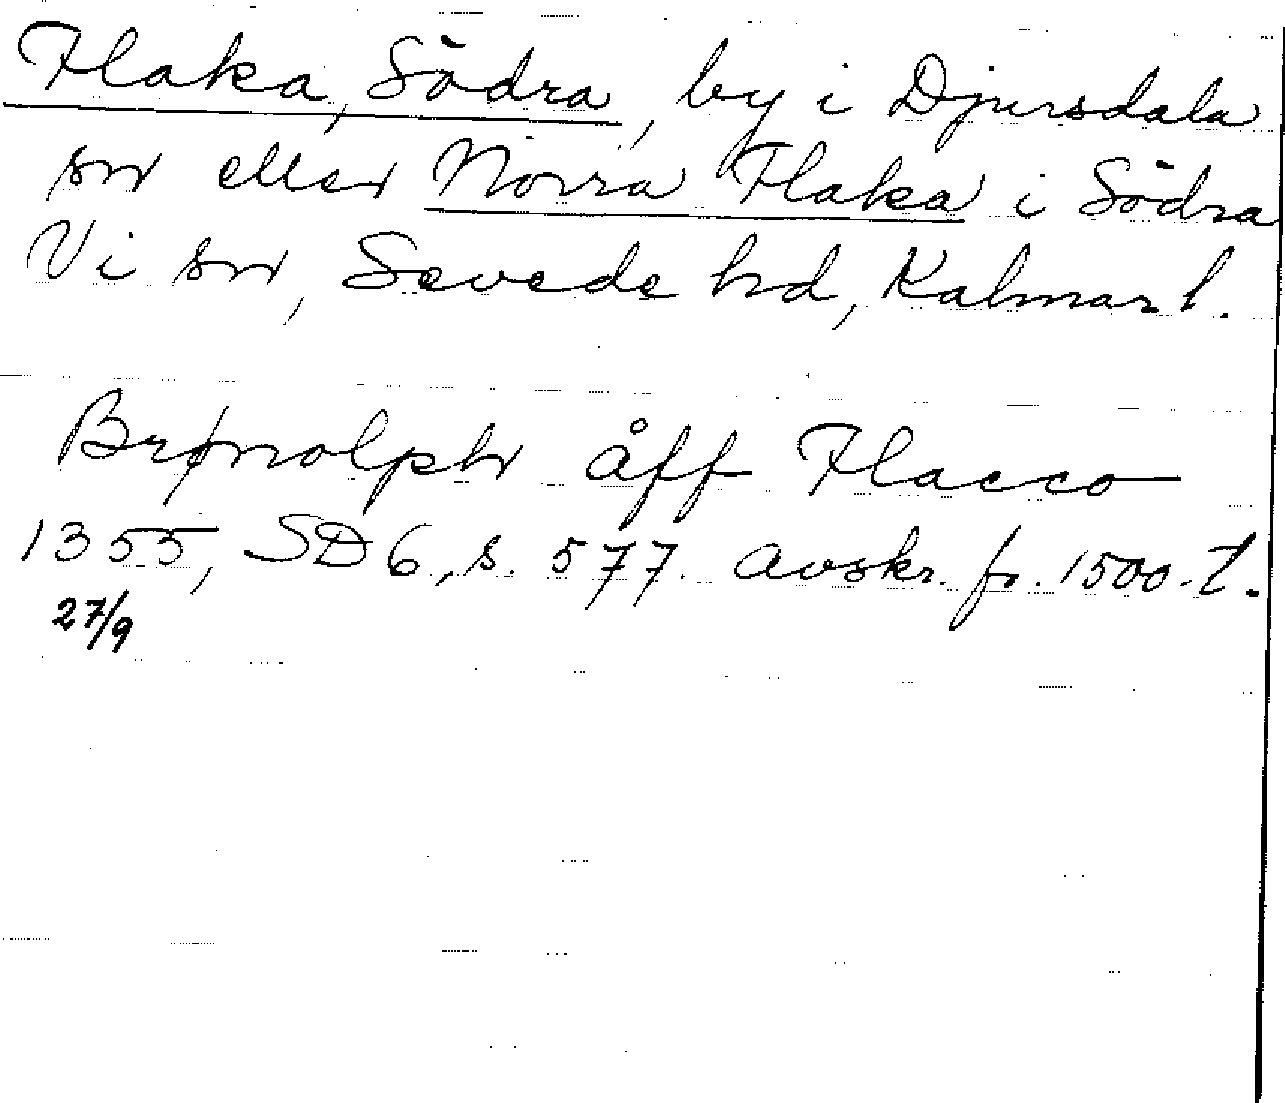 Flaka, Södra, by i Djursdala
sn eller Norra Flaka i Södra
Vi sn, Sevede hd, Kalmar l.
Brønolphr åff Flacco
1355, SD 6, s. 577. Avskr. fr. 1500-t.
27/9